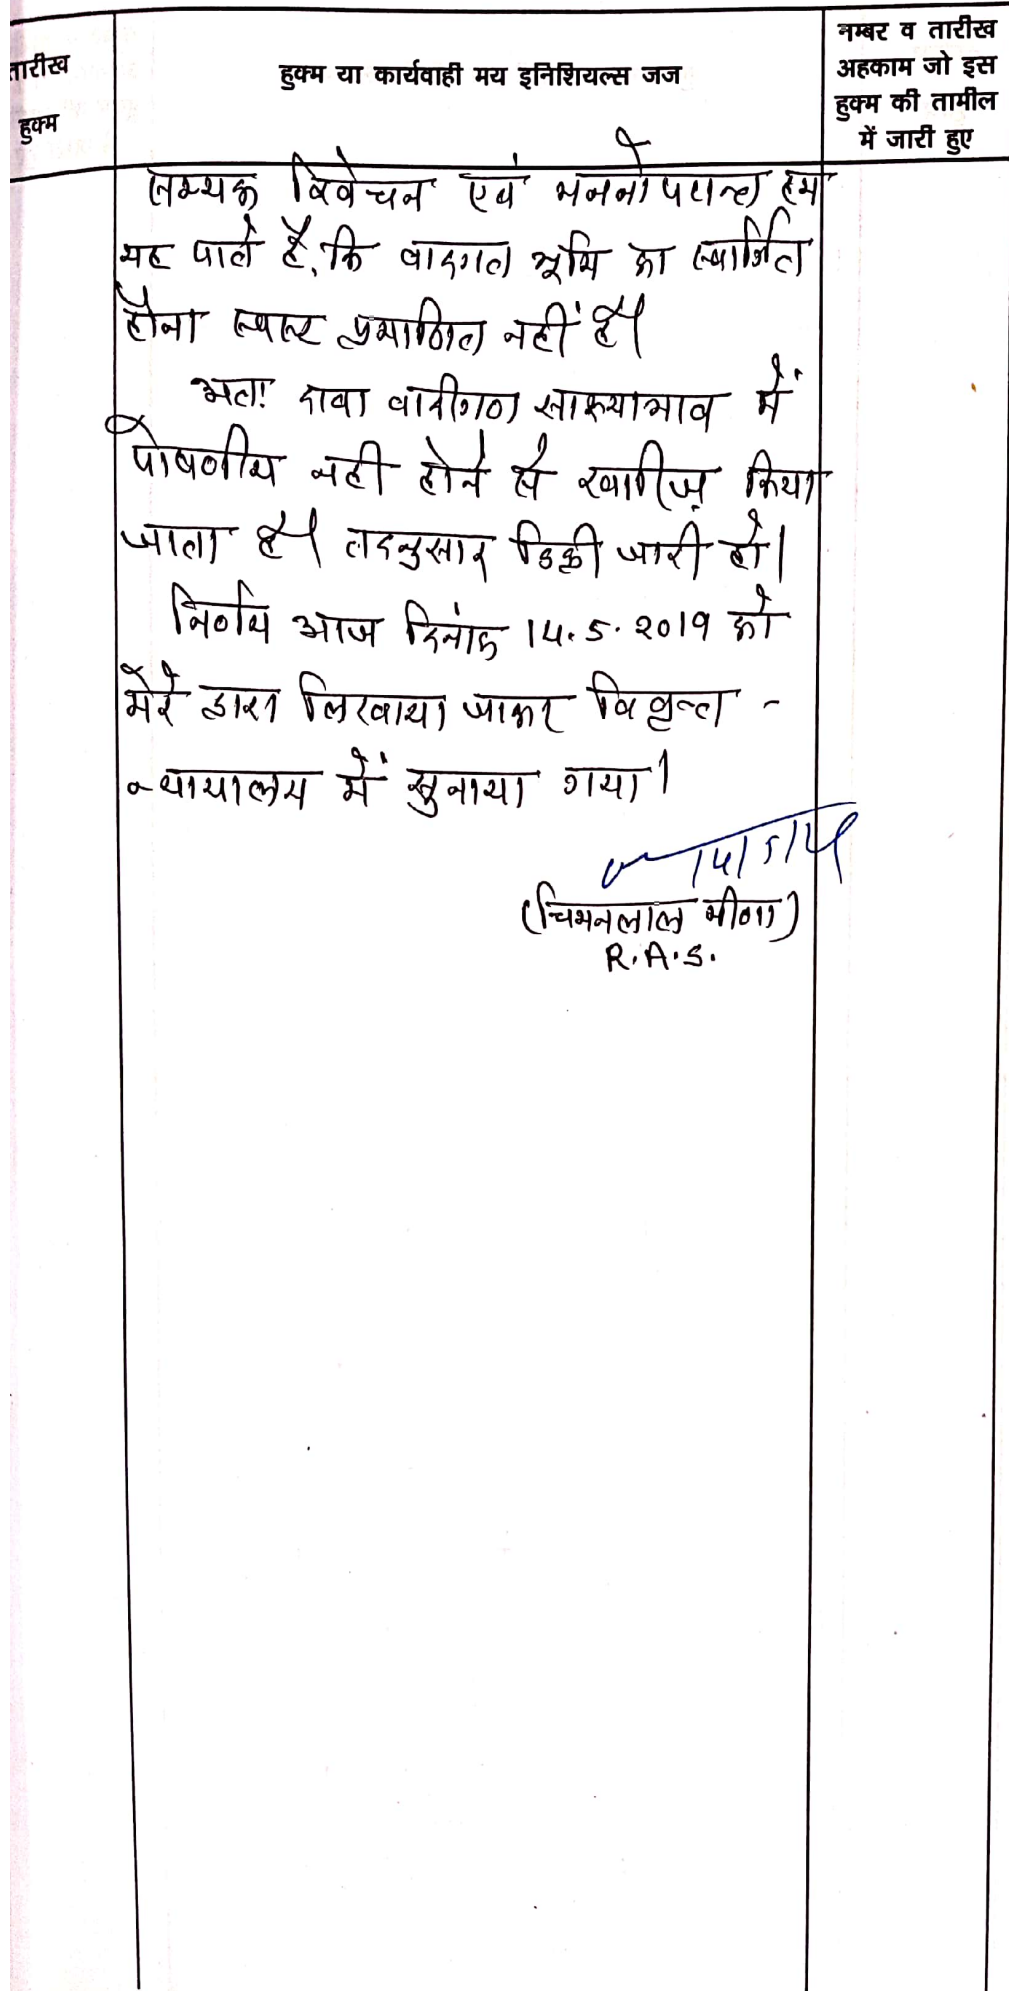 तारीख
हुक्म
हुक्म या कार्यवाही मय इनिशियल्स जज
नम्बर व तारीख
अहकाम जो इस
हुक्म की तामील
में जारी हुए
सम्यक विवेचन एवं मननोपरान्त हम
यह पाते है, कि वादगत भूमि का स्वार्जित
होना स्पष्ट प्रमाणित नहीं है।
अतः दावा वादीगण साक्ष्याभाव में
पोषणीय नही होने से खारिज़ किया
जाता है। तदनुसार डिक्री जारी हो।
निर्णय आज दिनांक 14.5.2019 को
मेरे द्वारा लिखवाया जाकर विवृत्त -
न्यायालय में सुनाया गया।
14/5/19
(चिमनलाल मीणा)
R.A.S.